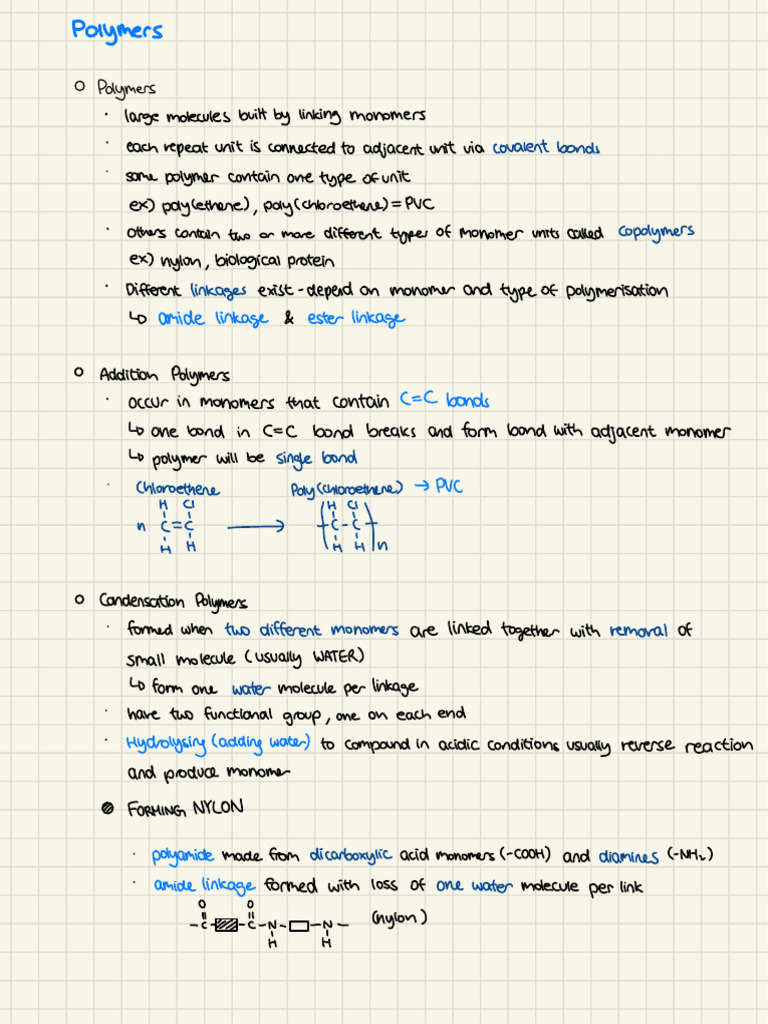 Polymers
○ Polymers
· large molecules built by linking monomers
· each repeat unit is connected to adjacent unit via covalent bonds
· some polymer contain one type of unit
ex) poly(ethene), poly(chloroethene) = PVC
· others contain two or more different types of monomer units called copolymers
ex) nylon, biological protein
· Different linkages exist - depend on monomer and type of polymerisation
↳ amide linkage & ester linkage
○ Addition Polymers
· occur in monomers that contain C=C bonds
↳ one bond in C=C bond breaks and form bond with adjacent monomer
↳ polymer will be single bond
· Chloroethene Poly(chloroethene) → PVC
H Cl H Cl
n C=C → -C-C-
H H H H n
○ Condensation Polymers
· formed when two different monomers are linked together with removal of
small molecule (usually WATER)
↳ form one water molecule per linkage
· have two functional group, one on each end
· Hydrolysing (adding water) to compound in acidic conditions usually reverse reaction
and produce monomer
FORMING NYLON
· polyamide made from dicarboxylic acid monomers (-COOH) and diamines (-NH₂)
· amide linkage formed with loss of one water molecule per link
O O
-C- -C-N- -N- (nylon)
H H